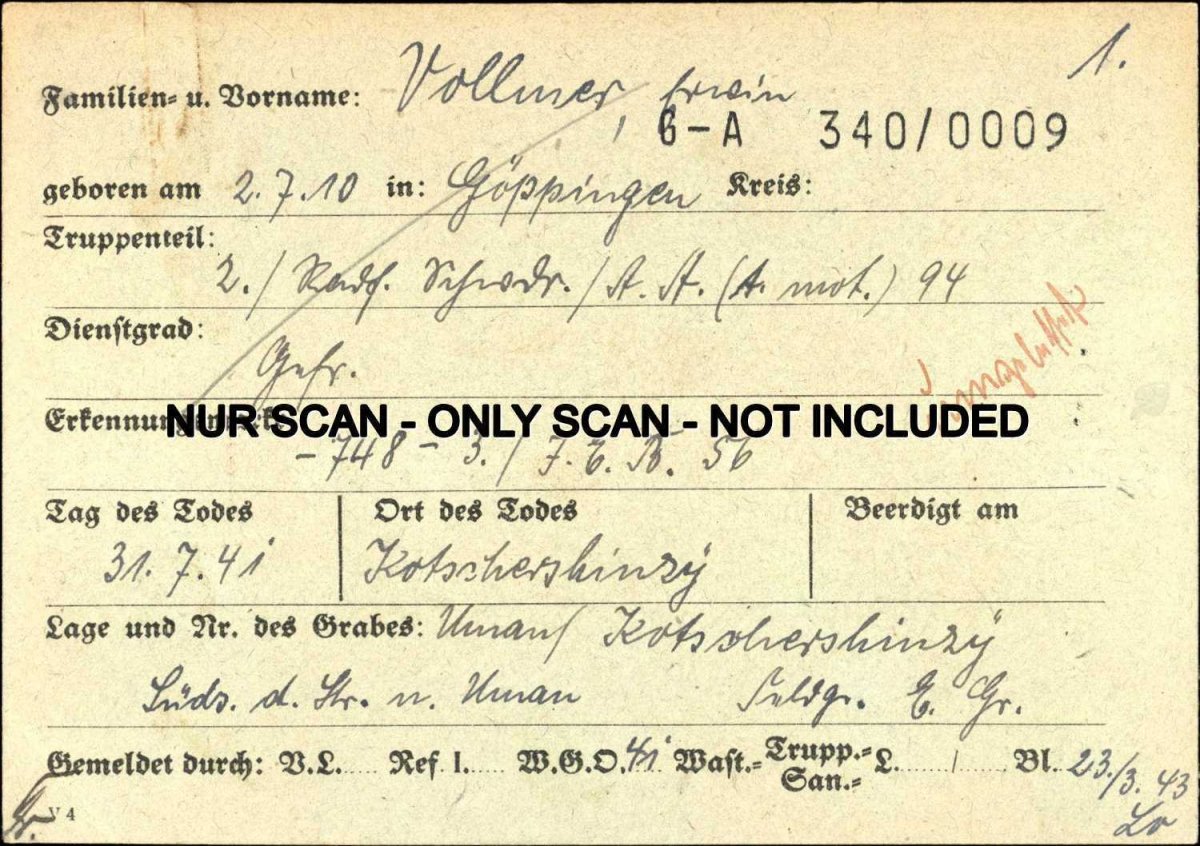 1.
Familien- u. Vorname: Vollmer Erwin
B-A 340/0009
geboren am 2.7.10 in: Göppingen Kreis:
Truppenteil:
2./ Radf. Schwdr./A.A. (t. mot.) 94
Dienstgrad:
Gefr.
Erkennungsmarke
NUR SCAN - ONLY SCAN - NOT INCLUDED
- 748 - 3./ J.E.B. 56
Tag des Todes Ort des Todes Beerdigt am
31. 7. 41 Kotschershinzy
Lage und Nr. des Grabes: Uman/ Kotschershinzy
Süds. d. Str. n. Uman Feldgr. E. Gr.
Gemeldet durch: V.L. Ref. I. W.G.O. 41 Wast.- Trupp.- San.- L. / Bl. 23./3. 43
V 4